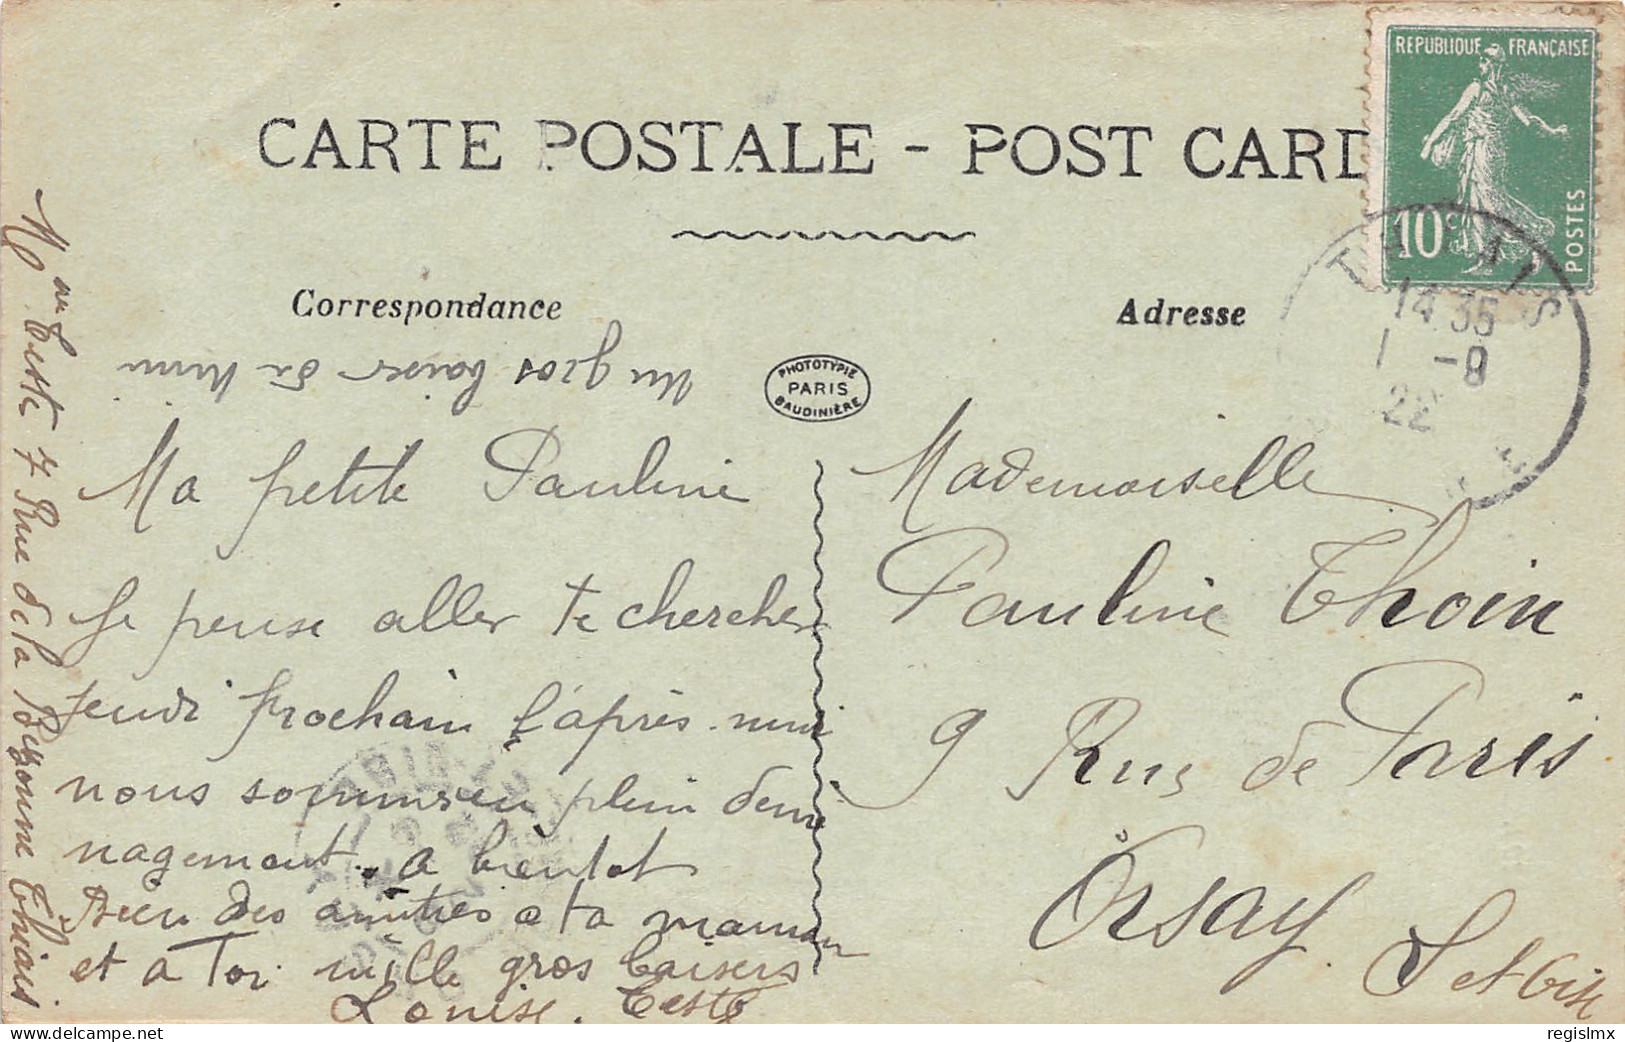 CARTE POSTALE - POST CARD
REPUBLIQUE FRANÇAISE
10c
POSTES
THIAIS
14 35
1 -9
22
Correspondance
Adresse
PHOTOTYPIE
PARIS
BAUDINIÈRE
Un gros baiser de Mimi
Ma petite Pauline
Je pense aller te chercher
jeudi prochain l'après-midi
nous sommes en plein démé
nagement. a bientot
Bien des amitiés a ta maman
et a Toi mille gros baisers
Louise. Teste
Mme Teste 7 Rue de la Bezonne Thiais
Mademoiselle
Pauline Thoin
9 Rue de Paris
Orsay
S et Oise
regislmx